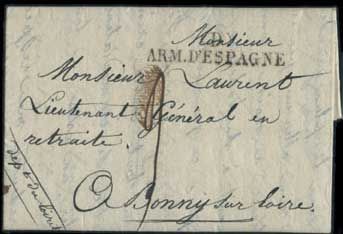 Monsieur
ARM. D'ESPAGNE
Monsieur Laurent
Lieutenant Général en
retraite.
à Bonny sur loire.